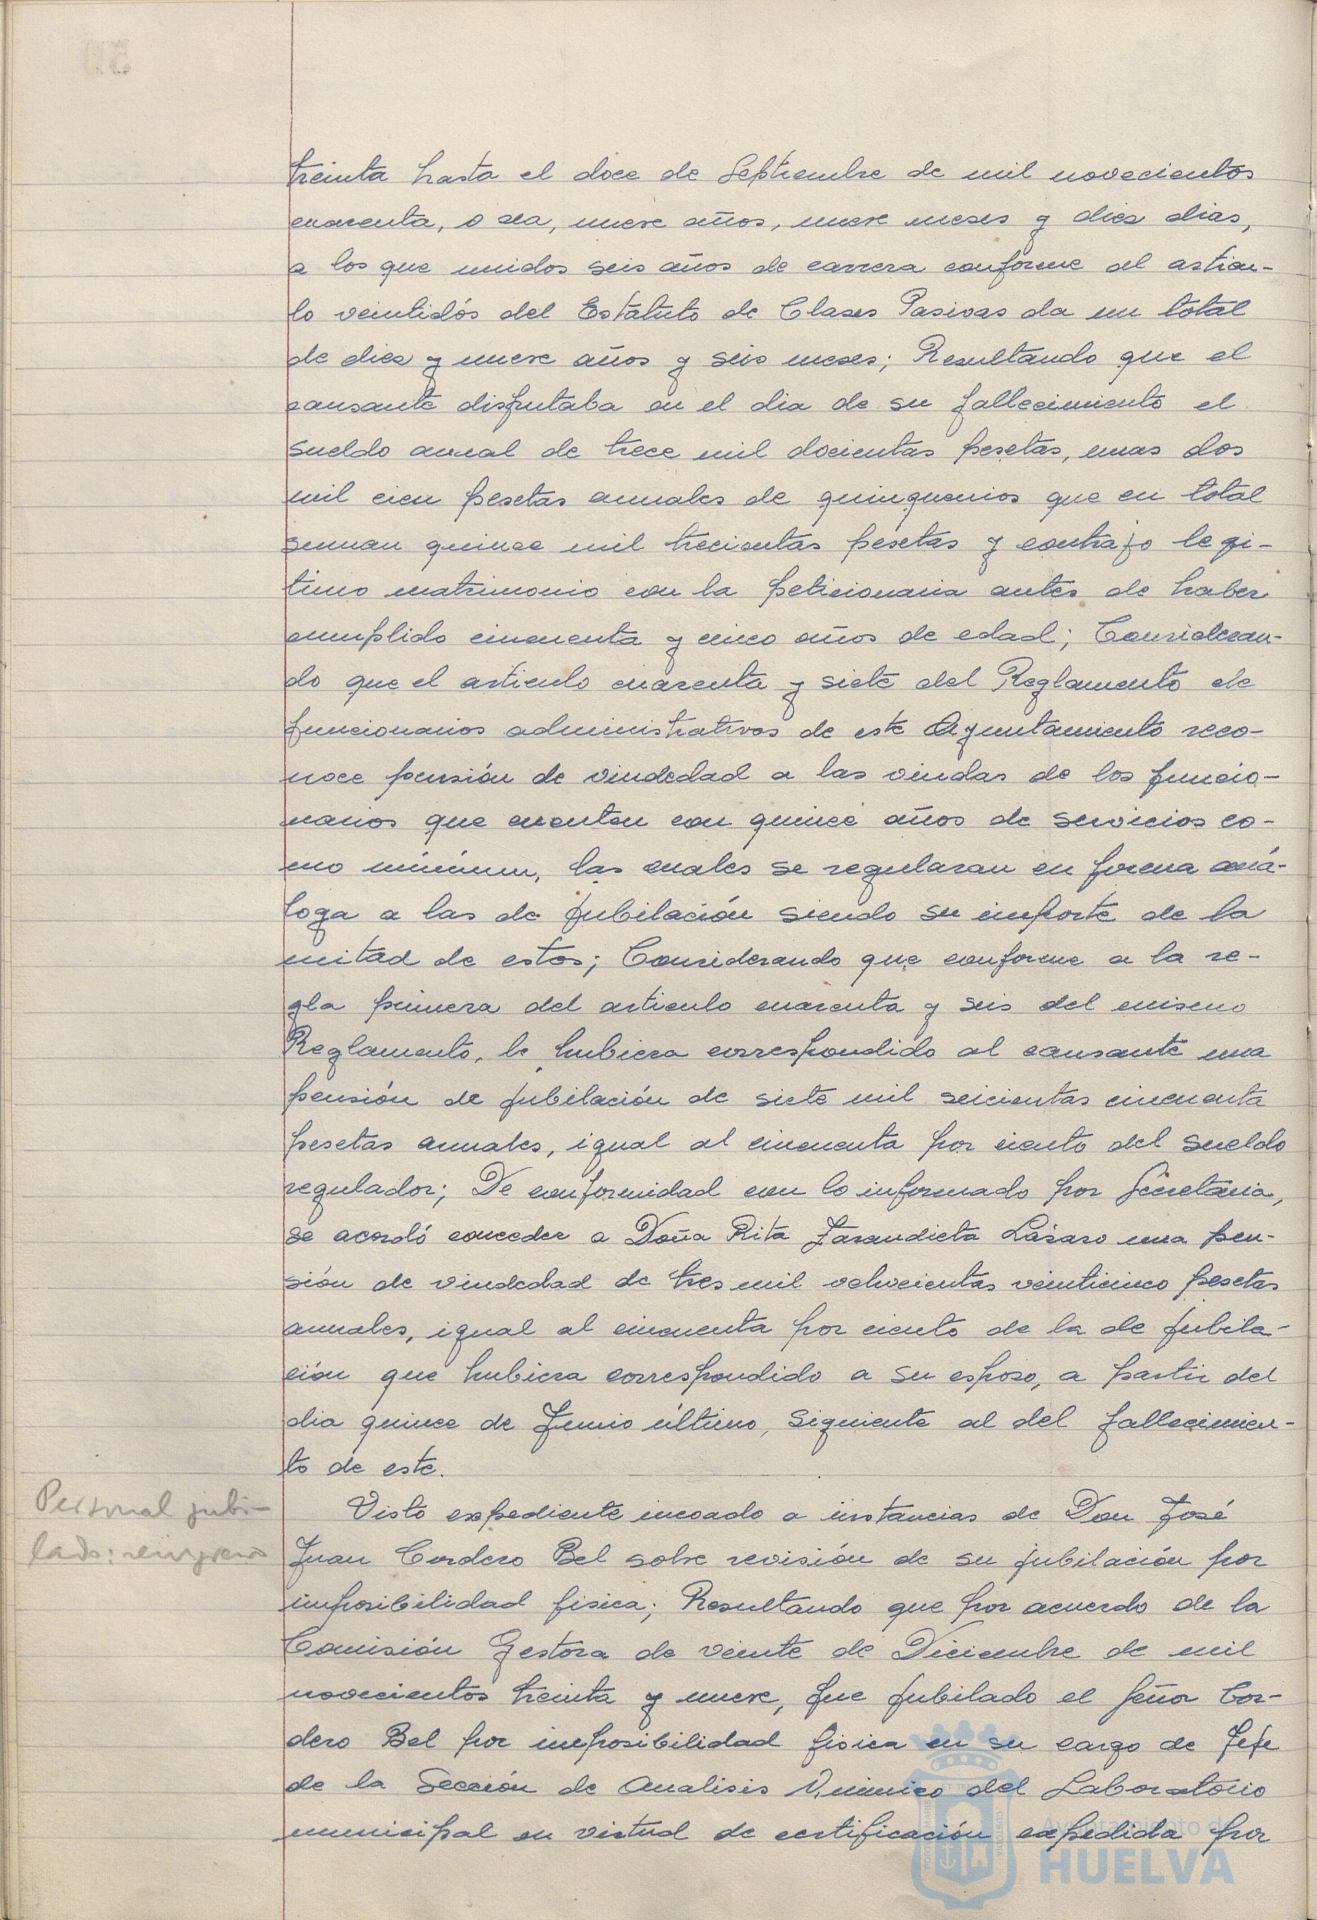 treinta hasta el doce de Septiembre de mil novecientos
cuarenta, o sea, nueve años, nueve meses y diez dias,
a los que unidos seis años de carrera conforme al articu-
lo veintidós del Estatuto de Clases Pasivas da un total
de diez y nueve años y seis meses; Resultando que el
causante disfrutaba en el dia de su fallecimiento el
sueldo anual de trece mil docientas pesetas, mas dos
mil cien pesetas anuales de quinquenios que en total
suman quince mil trecientas pesetas y contrajo legi-
timo matrimonio con la peticionaria antes de haber
cumplido cincuenta y cinco años de edad; Consideran-
do que el articulo cuarenta y siete del Reglamento de
funcionarios administrativos de este Ayuntamiento reco-
noce pensión de viudedad a las viudas de los funcio-
narios que cuenten con quince años de servicios co-
mo mínimun, las cuales se regularan en forma aná-
loga a las de jubilación siendo su importe de la
mitad de estos; Considerando que conforme a la re-
gla primera del articulo cuarenta y seis del mismo
Reglamento, le hubiera correspondido al causante una
pensión de jubilación de siete mil seicientas cincuenta
pesetas anuales, igual al cincuenta por ciento del sueldo
regulador; De conformidad con lo informado por Secretaria,
se acordó conceder a Doña Rita Zarandieta Lázaro una pen-
sión de viudedad de tres mil ochocientas veinticinco pesetas
anuales, igual al cincuenta por ciento de la de jubila-
ción que hubiera correspondido a su esposo, a partir del
dia quince de Junio último, siguiente al del fallecimien-
to de este.
Personal jubi-
lado: reingreso
Visto expediente incoado a instancias de Don José
Juan Cordero Bel sobre revisión de su jubilación por
imposibilidad fisica; Resultando que por acuerdo de la
Comisión Gestora de veinte de Diciembre de mil
novecientos treinta y nueve, fue jubilado el Señor Cor-
dero Bel por imposibilidad fisica en su cargo de Jefe
de la Sección de Analisis Quimico del Laboratorio
municipal en virtud de certificación expedida por
Ayuntamiento de
HUELVA